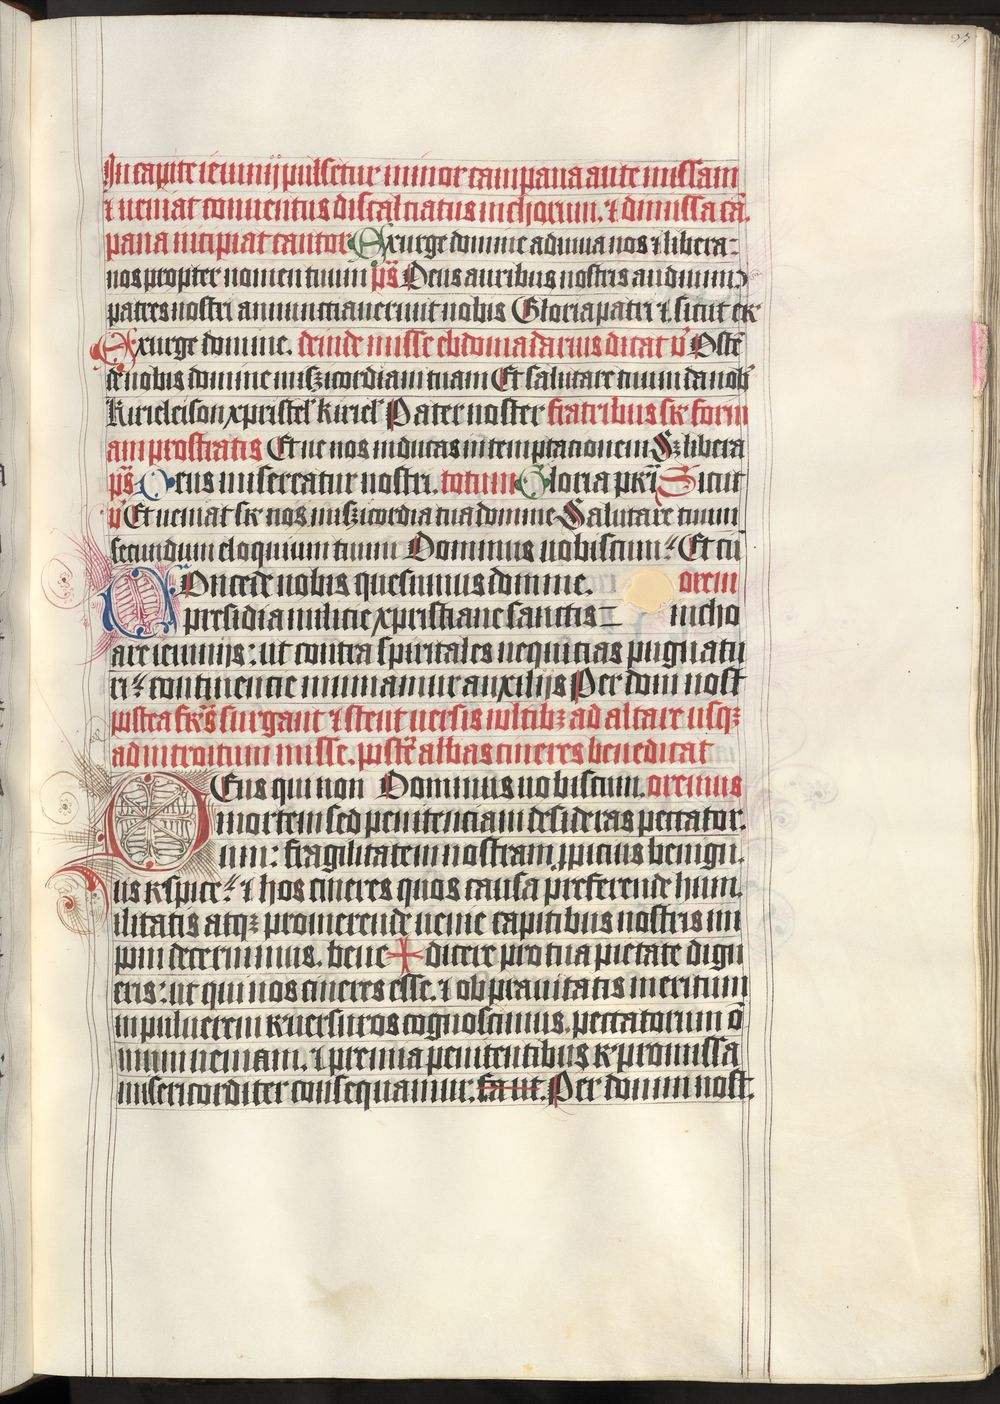 23
In capite ieiunij pulsetur minor campana ante missam
⁊ ueniat conuentus discalciatus in chorum. ⁊ dimissa cā-
pana incipiat cantor Exurge domine adiuua nos ⁊ libera-
nos propter nomen tuum p̄s Deus auribus nostris audiuim⁹
patres nostri annunctiauerunt nobis Gloria patri ⁊ sicut er̄
Exurge domine. deinde misse ebdomadarius dicat v̓ Ostē
de nobis domine mis̄icordiam tuam Et salutare tuum da nob̓
Kirieleison xpristel̓ kiriel̓ Pater noster fratribus sr̄ form
am prostratis Et ne nos inducas in temptationem Sꝫ libera
p̄s Deus misereatur nostri. totum Gloria pr̄i Sicut
v̓ Et ueniat sr̄ nos mis̄icordia tua domine Salutare tuum
secundum eloquium tuum Dominus uobiscum Et cū
Oncede nobis quesumus domine. orem
presidia milicie xpristiane sanctis incho
are ieiunijs: ut contra spiritales nequitias pugnatu
ri continentie muniamur auxilijs Per dom nost
postea fr̄s surgant ⁊ stent uersis uultibꝫ ad altare usqꝫ
ad introitum misse. post̄ albas cineres benedicat
Eus qui non Dominus uobiscum. oremus
mortem sed penitentiam desideras peccator-
um: fragilitatem nostram ꝓpicius benign-
us respice ⁊ hos cineres quos causa preferende hum-
ilitatis atqꝫ promerende uenie capitibus nostris im
poni decernimus. bene + dicere pro tua pietate dign
eris: ut qui nos cineres esse. ⁊ ob prauitatis meritum
in puluerem reuersuros cognoscimus. peccatorum ō
nium ueniam. ⁊ premia penitentibus repromissa
misericorditer consequamur. Per domin nost.